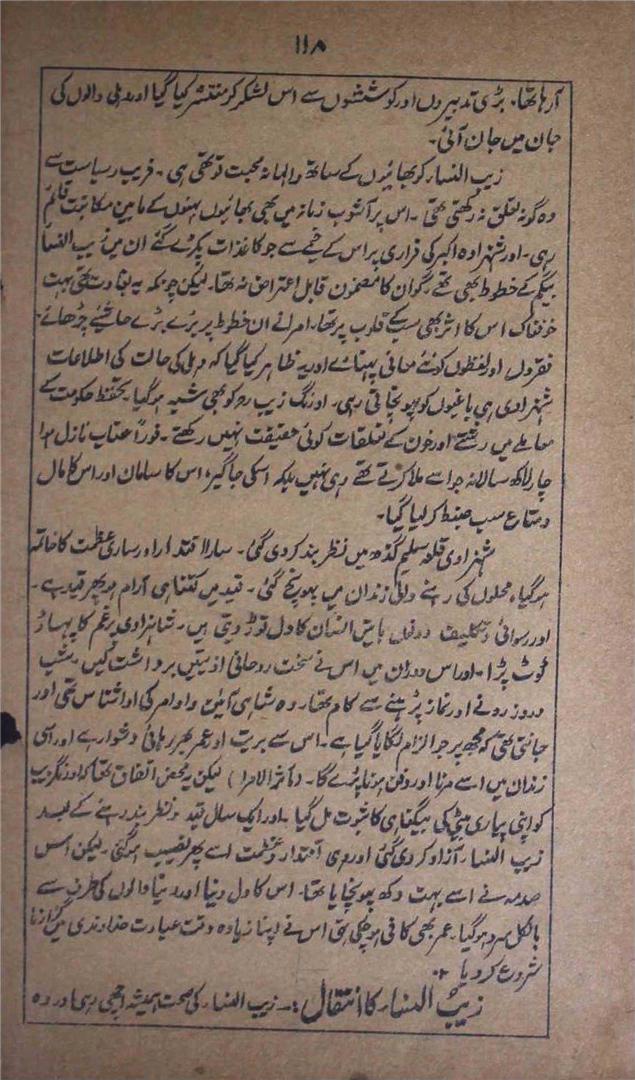 ۱۱۸
آرہا تھا۔ بڑی تدبیروں اور کوششوں سے اس لشکر کو منتشر کیا گیا اور دہلی والوں کی
جان میں جان آئی۔
زیب النساء کو بھائیوں کے ساتھ والہانہ محبت تو تھی ہی۔ فریب ریاست سے
وہ گونہ تعلق نہ رکھتی تھی۔ اس پر آشوب زمانہ میں بھی بھائیوں بہنوں کے مابین مکاتبت قائم
رہی۔ اور شہزادہ اکبر کی فراری پر اس کے خیمے سے جو کاغذات پکڑے گئے ان میں زیب النساء
بیگم کے خطوط بھی تھے۔ گو ان کا مضمون قابل اعتراض نہ تھا۔ لیکن چونکہ یہ بغاوت تھی بہت
خوفناک اس کا اثر بھی سب کے قلوب پر تھا۔ امرا نے ان خطوط پر بڑے بڑے حاشیئے چڑھائے۔
فقروں اور لفظوں کو نئے معانی پہنائے اور یہ ظاہر کیا گیا کہ دہلی کی حالت کی اطلاعات
شہزادی ہی باغیوں کو پہونچاتی رہی۔ اورنگ زیب رح کو بھی شبہ ہوگیا۔ تحفظ حکومت کے
معاملے میں رشتے اور خون کے تعلقات کوئی حقیقت نہیں رکھتے۔ فوراً عتاب نازل ہوا
چار لاکھ سالانہ جو اسے ملا کرتے تھے وہی نہیں بلکہ اسکی جاگیر، اس کا سامان اور اس کا مال
و متاع سب ضبط کر لیا گیا۔
شہزادی قلعہ سلیم گڈھ میں نظر بند کر دی گئی۔ سارا اقتدار اور ساری عظمت کا خاتمہ
ہوگیا، محلوں کی رہنے والی زندان میں پہونچ گئی۔ قید میں کتنا ہی آرام ہو پھر قید ہے۔
اور رسوائی و تکلیف دونوں باتیں انسان کا دل توڑ دیتی ہیں۔ شاہزادی پر غم کا پہاڑ
ٹوٹ پڑا۔ اور اس دوران میں اس نے سخت روحانی اذیتیں برداشت کیں۔ شب
و روز رونے اور نماز پڑھنے سے کام تھا۔ وہ شاہی آئین و اوامر کی اداشناس تھی اور
جانتی تھی کہ مجھ پر جو الزام لگایا گیا ہے۔ اس سے بریت اور عمر بھر رہائی دشوار ہے اور اسی
زندان میں اسے مرنا اور دفن ہونا پڑے گا۔ (مآثر الامرا) لیکن یہ محض اتفاق تھا کہ اورنگزیب
کو اپنی پیاری بیٹی کی بیگناہی کا ثبوت مل گیا۔ اور ایک سال قید و نظر بند رہنے کے بعد
زیب النساء آزاد کر دی گئی اور وہی اقتدار و عظمت اسے پھر نصیب ہو گئی۔ لیکن اس
صدمہ نے اسے بہت دکھ پہونچایا تھا۔ اس کا دل دنیا اور دنیا والوں کی طرف سے
بالکل سرد ہوگیا۔ عمر بھی کافی ہو چکی تھی اس نے اپنا زیادہ وقت عبادت خداوندی میں گزارنا
شروع کر دیا ۔
زیب النساء کا انتقال :۔ زیب النساء کی صحت ہمیشہ اچھی رہی اور وہ